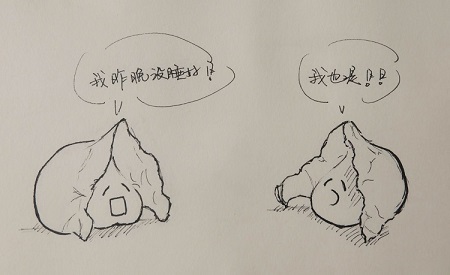 我昨晚没睡好！
我也是！！